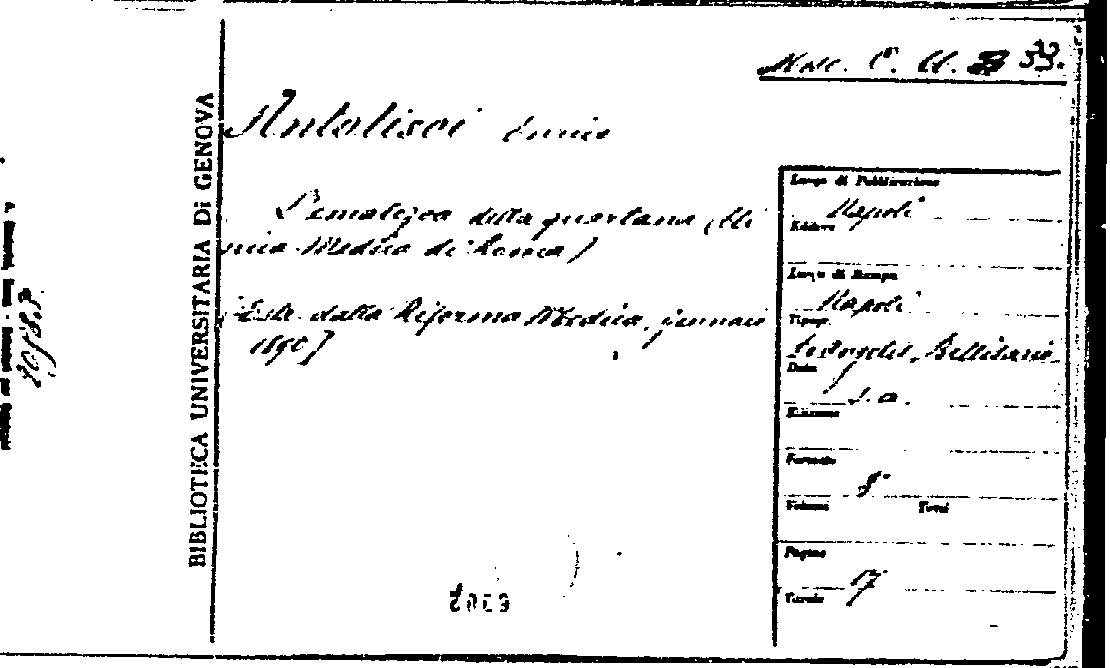 Misc. C. U. 33.
BIBLIOTECA UNIVERSITARIA DI GENOVA
Antolisei Ennio
L'ematozoa della quartana (Cli
nica Medica di Roma)
(Estr. dalla Riforma Medica, gennaio
1890)
Luogo di Pubblicazione
Napoli
Editore
Luogo di Stampa
Napoli
Tipogr.
De Angelis, Bellisario
Data
s. a.
Edizione
Formato
8°
Volume Tomi
Pagine
17
Tavole